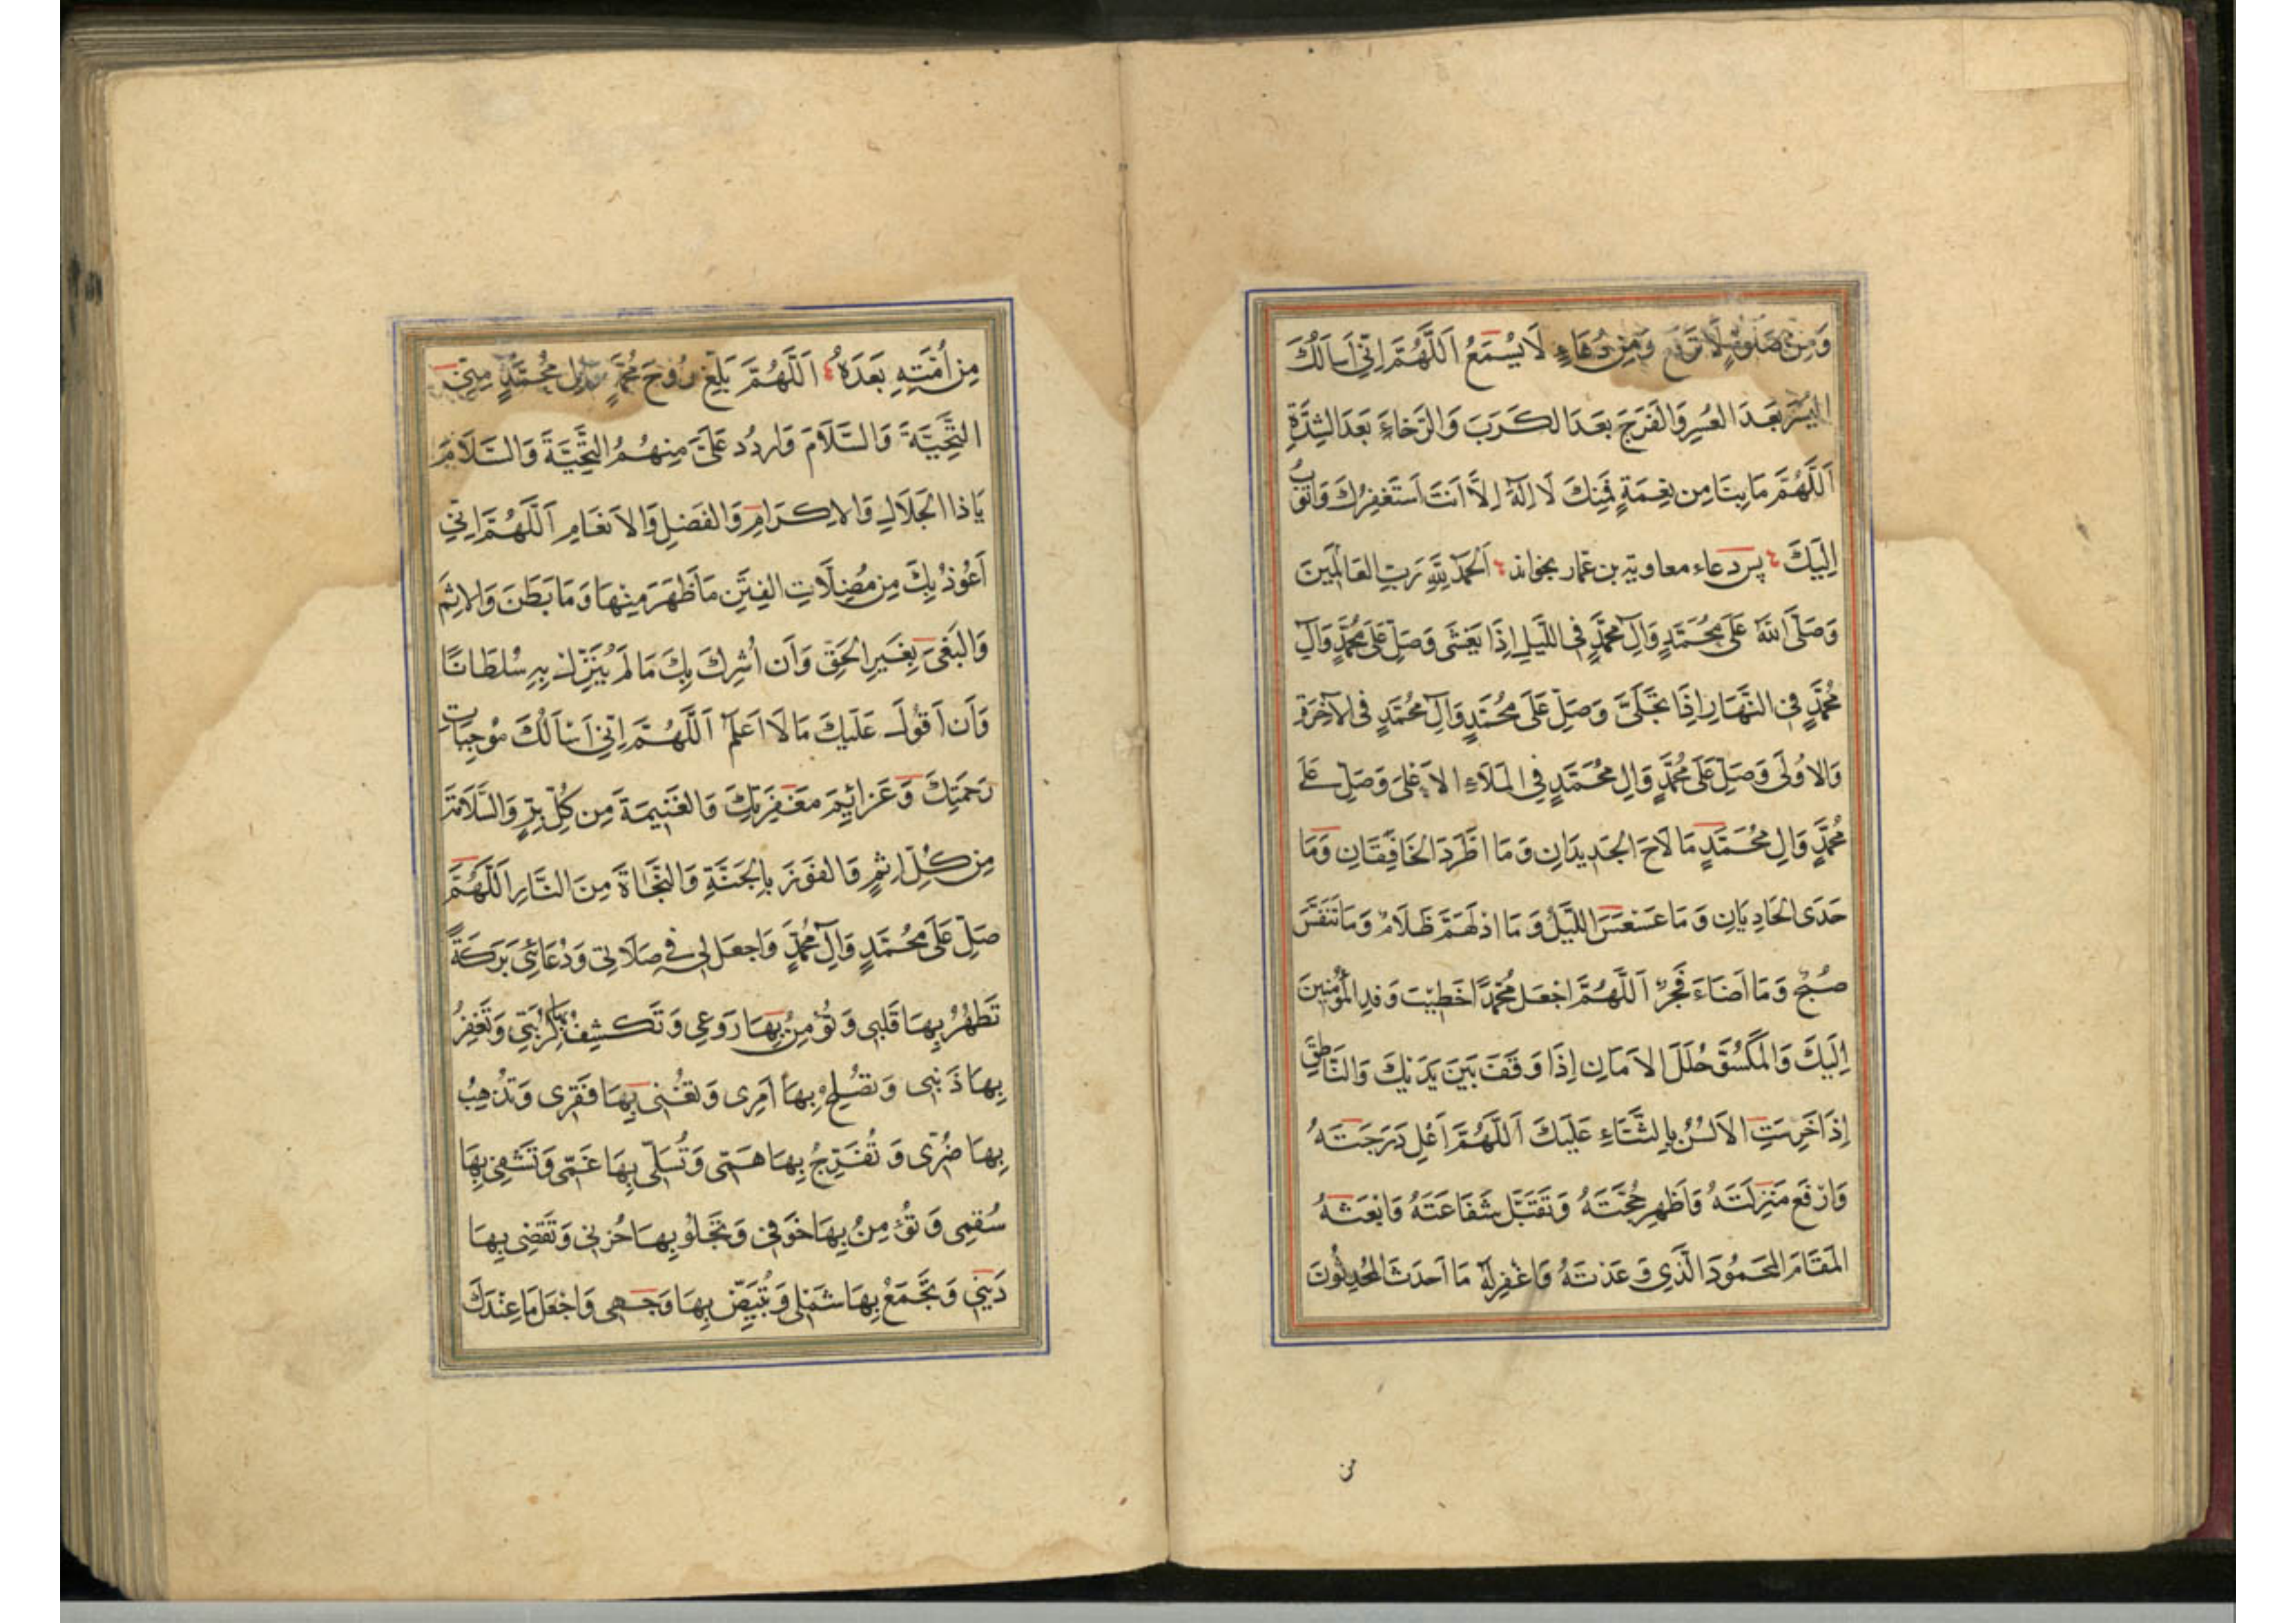 وَمِنْ صَلٰوةٍ لَا تُرْفَعُ وَمِنْ دُعَاءٍ لَا يُسْمَعُ اَللّٰهُمَّ اِنِّي اَسَالُكَ
اليُسْرَ بَعدَ العُسرِ وَالفَرَجَ بَعدَ الكَربِ وَالرَّخاءَ بَعدَ الشِدَّةِ
اَللّٰهُمَّ مَا بِنَا مِن نِعمَةٍ فَمِنكَ لَا اِلٰهَ اِلَّا اَنتَ اَستَغفِرُكَ وَاَتُوبُ
اِلَيكَ پس دعاء معاوية بن عمار بخواند اَلحَمدُ لِلّٰهِ رَبِّ العَالَمِينَ
وَصَلَّى اللّٰهُ عَلَى مُحَمَّدٍ وَآلِ مُحَمَّدٍ فِي اللَّيلِ اِذَا يَغشَى وَصَلِّ عَلَى مُحَمَّدٍ وَآلِ
مُحَمَّدٍ فِي النَّهَارِ اِذَا تَجَلَّىٰ وَصَلِّ عَلَى مُحَمَّدٍ وَآلِ مُحَمَّدٍ فِي الآخِرَةِ
وَالاُولَى وَصَلِّ عَلَى مُحَمَّدٍ وَآلِ مُحَمَّدٍ فِي المَلَاءِ الاَعْلَى وَصَلِّ عَلَى
مُحَمَّدٍ وَآلِ مُحَمَّدٍ مَا لَاحَ الجَدِيدَانِ وَمَا اطَّرَدَ الخَافِقَانِ وَمَا
حَدَى الحَادِيَانِ وَمَا عَسْعَسَ اللَّيْلُ وَمَا ادْلَهَمَّ ظَلَامٌ وَمَا تَنَفَّسَ
صُبْحٌ وَمَا اَضَاءَ فَجْرٌ اَللّٰهُمَّ اجْعَل مُحَمَّدًا خَطِيْبَ وَفدِ المُؤمِنِينَ
اِلَيكَ وَالمَكسُوَّ حُلَلَ الاَمَانِ اِذَا وَقَفَ بَينَ يَدَيْكَ وَالنَّاطِقَ
اِذَا خَرِسَتِ الاَلسُنُ بِالثَّنَاءِ عَلَيكَ اَللّٰهُمَّ اَعْلِ دَرَجَتَهُ
وَارْفَع مَنزِلَتَهُ وَاَظهِر حُجَّتَهُ وَتَقَبَّل شَفَاعَتَهُ وَابْعَثهُ
المَقَامَ المَحمُودَ الَّذِي وَعَدْتَهُ وَاغْفِر لَهُ مَا اَحدَثَ المُحدِثُونَ
من
مِن اُمَّتِهِ بَعدَهُ اَللّٰهُمَّ بَلِّغ رُوحَ مُحَمَّدٍ وَآلِ مُحَمَّدٍ مِنِّي
التَّحِيَّةَ وَالسَّلَامَ وَاردُد عَلَيَّ مِنهُمُ التَّحِيَّةَ وَالسَّلَامَ
يَا ذَا الجَلَالِ وَالاِكرَامِ وَالفَضلِ وَالاِنعَامِ اَللّٰهُمَّ اِنِّي
اَعُوذُ بِكَ مِن مُضِلَّاتِ الفِتَنِ مَا ظَهَرَ مِنهَا وَمَا بَطَنَ وَالاِثمَ
وَالبَغيَ بِغَيرِ الحَقِّ وَاَن اُشرِكَ بِكَ مَا لَم يُنَزِّل بِهِ سُلطَانًا
وَاَن اَقُولَ عَلَيكَ مَا لَا اَعلَمُ اَللّٰهُمَّ اِنِّي اَسْاَلُكَ مُوْجِبَاتِ
رَحمَتِكَ وَعَزائِمَ مَغفِرَتِكَ وَالغَنِيمَةَ مِن كُلِّ بِرٍّ وَالسَّلَامَةَ
مِن كُلِّ اِثمٍ وَالفَوزَ بِالجَنَّةِ وَالنَّجَاةَ مِنَ النَّارِ اَللّٰهُمَّ
صَلِّ عَلَى مُحَمَّدٍ وَآلِ مُحَمَّدٍ وَاجعَل لِي فِي صَلَاتِي وَدُعَائِي بَرَكَةً
تُطَهِّرُ بِهَا قَلبِي وَتُؤمِنُ بِهَا رَوعِي وَتَكشِفُ بِهَا كُرْبَتِي وَتَغفِرُ
بِهَا ذَنبِي وَتُصْلِحُ بِهَا اَمرِي وَتُغْنِي بِهَا فَقرِي وَتُذهِبُ
بِهَا ضُرِّي وَتُفَرِّجُ بِهَا هَمِّي وَتُسَلِّي بِهَا غَمِّي وَتَشفِي بِهَا
سُقمِي وَتُؤمِنُ بِهَا خَوفِي وَتَجلُو بِهَا حُزنِي وَتَقضِي بِهَا
دَينِي وَتَجمَعُ بِهَا شَمْلِي وَتُبَيِّضُ بِهَا وَجهِي وَاجْعَل مَا عِندَكَ